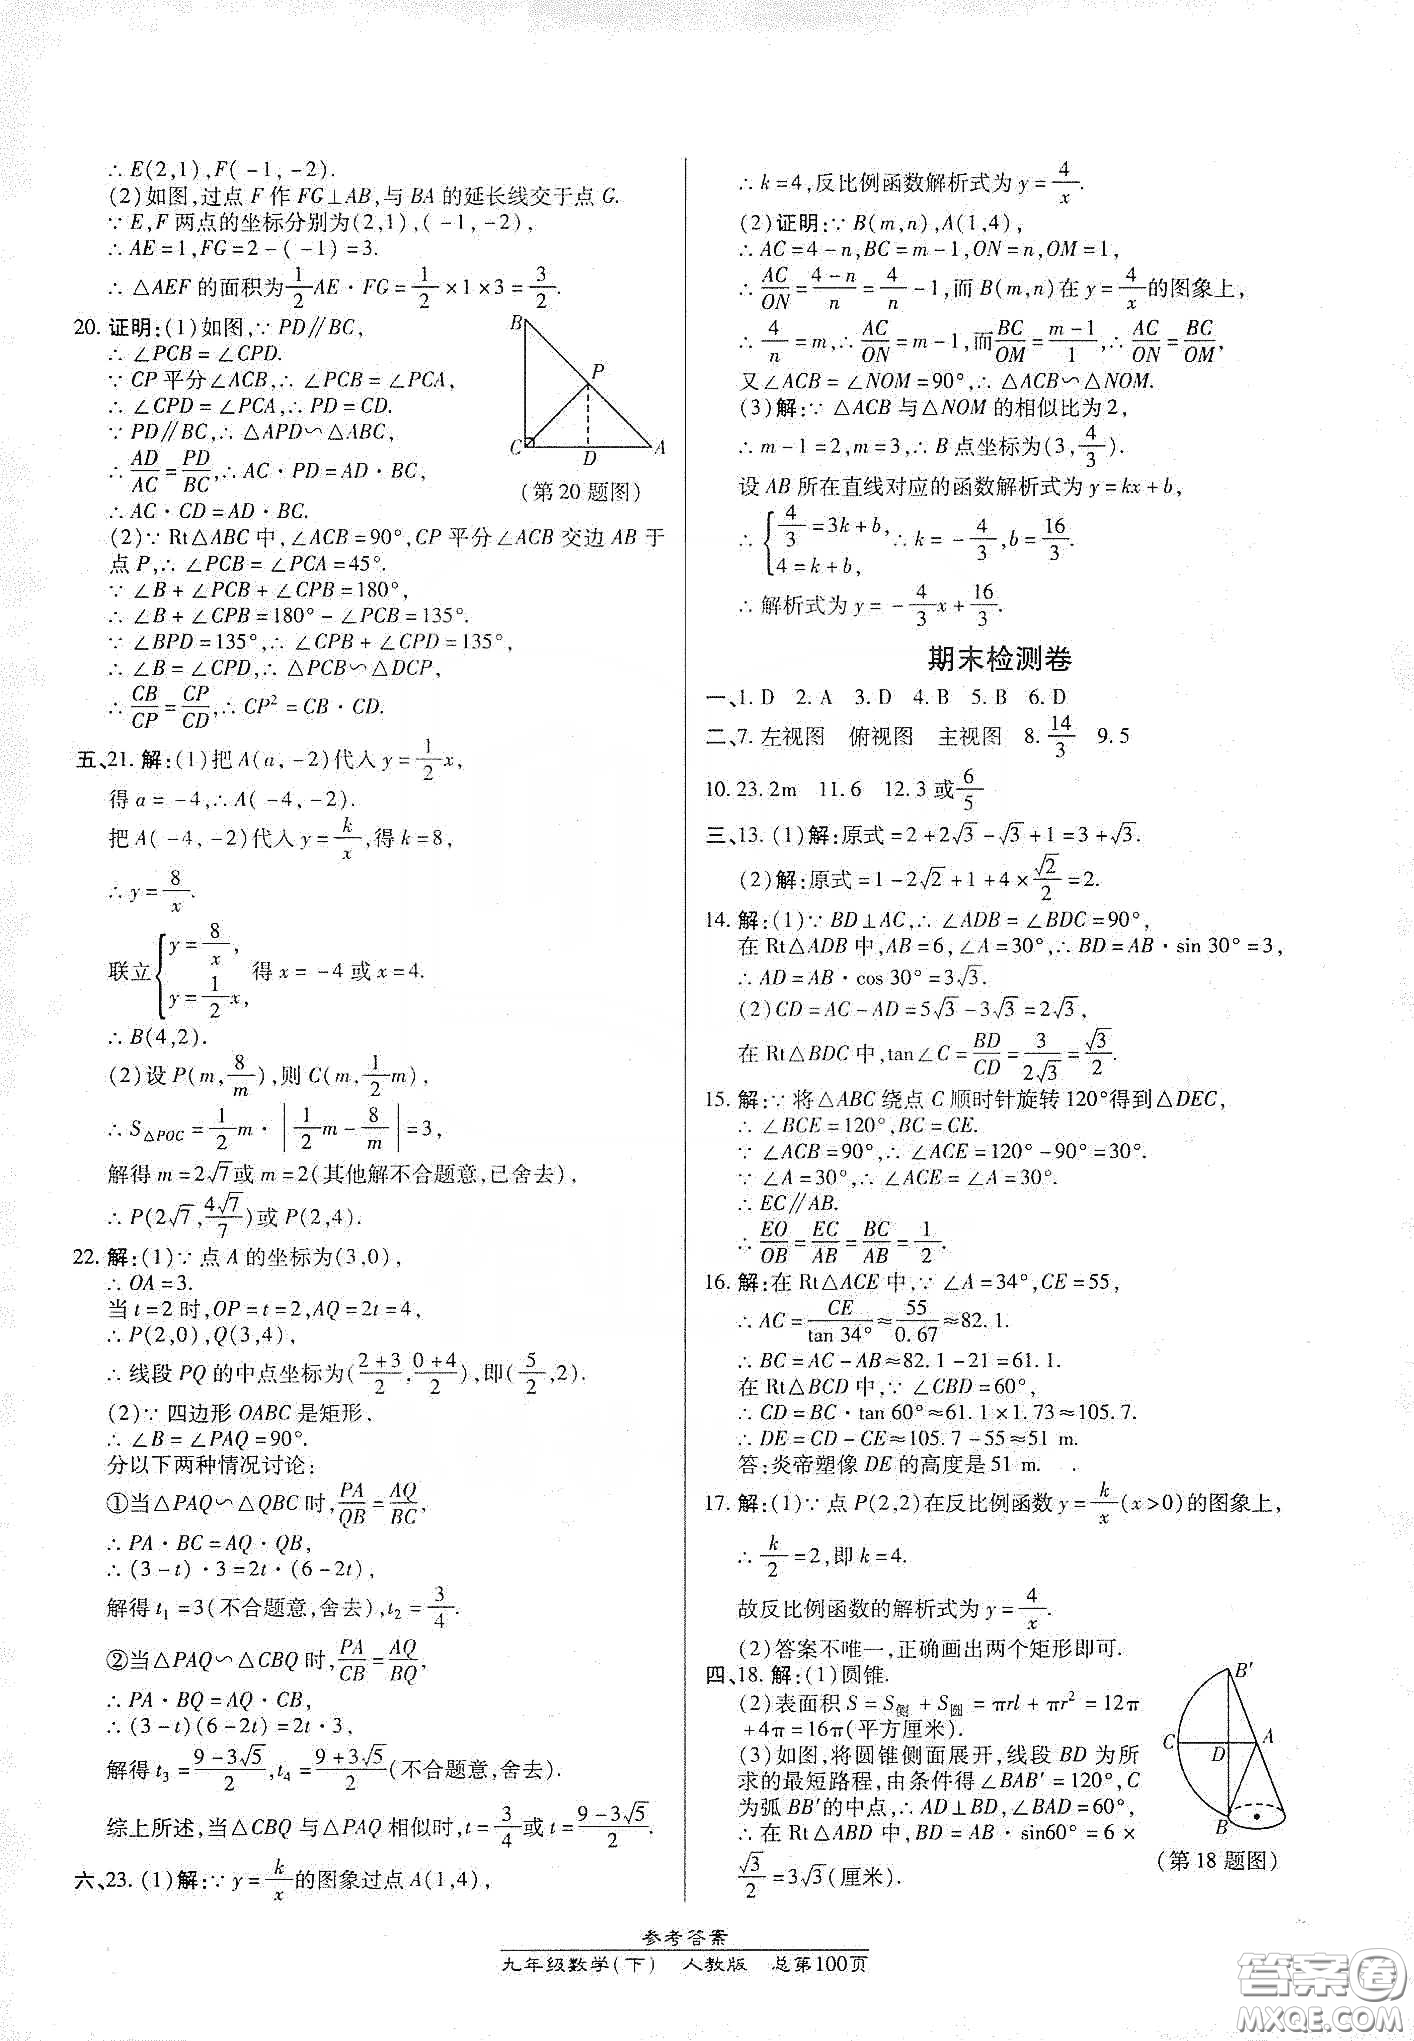 ∴E(2,1),F(-1,-2).
(2)如图,过点 F 作 FG⊥AB,与 BA 的延长线交于点 G.
∵E,F 两点的坐标分别为(2,1),(-1,-2),
∴AE=1,FG=2-(-1)=3.
∴△AEF 的面积为1/2AE·FG=1/2×1×3=3/2.
20.证明:(1)如图,∵PD∥BC,
∴∠PCB=∠CPD.
∵CP 平分∠ACB,∴∠PCB=∠PCA,
∴∠CPD=∠PCA,∴PD=CD.
∵PD∥BC,∴△APD∽△ABC,
∴AD/AC=PD/BC,∴AC·PD=AD·BC,
∴AC·CD=AD·BC.
B
P
C
D
A
(第 20 题图)
(2)∵Rt△ABC 中,∠ACB=90°,CP 平分∠ACB 交边 AB 于
点 P,∴∠PCB=∠PCA=45°.
∵∠B+∠PCB+∠CPB=180°,
∴∠B+∠CPB=180°-∠PCB=135°.
∵∠BPD=135°,∴∠CPB+∠CPD=135°,
∴∠B=∠CPD,∴△PCB∽△DCP,
∴CB/CP=CP/CD,∴CP²=CB·CD.
五、21.解:(1)把 A(a,-2)代入 y=1/2x,
得 a=-4,∴A(-4,-2).
把 A(-4,-2)代入 y=k/x,得 k=8,
∴y=8/x.
联立{y=8/x, y=1/2x, 得 x=-4 或 x=4.
∴B(4,2).
(2)设 P(m,8/m),则 C(m,1/2m),
∴S△POC=1/2m·|1/2m-8/m|=3,
解得 m=2√7或 m=2(其他解不合题意,已舍去),
∴P(2√7,4√7/7)或 P(2,4).
22.解:(1)∵点 A 的坐标为(3,0),
∴OA=3.
当 t=2 时,OP=t=2,AQ=2t=4,
∴P(2,0),Q(3,4),
∴线段 PQ 的中点坐标为((2+3)/2,(0+4)/2),即(5/2,2).
(2)∵四边形 OABC 是矩形,
∴∠B=∠PAQ=90°.
分以下两种情况讨论:
①当△PAQ∽△QBC 时,PA/QB=AQ/BC,
∴PA·BC=AQ·QB,
∴(3-t)·3=2t·(6-2t),
解得 t₁=3(不合题意,舍去),t₂=3/4.
②当△PAQ∽△CBQ 时,PA/CB=AQ/BQ,
∴PA·BQ=AQ·CB,
∴(3-t)(6-2t)=2t·3,
解得 t₃=(9-3√5)/2,t₄=(9+3√5)/2(不合题意,舍去).
综上所述,当△CBQ 与△PAQ 相似时,t=3/4或 t=(9-3√5)/2.
六、23.(1)解:∵y=k/x的图象过点 A(1,4),
∴k=4,反比例函数解析式为 y=4/x.
(2)证明:∵B(m,n),A(1,4),
∴AC=4-n,BC=m-1,ON=n,OM=1,
∴AC/ON=(4-n)/n=4/n-1,而 B(m,n)在 y=4/x的图象上,
∴4/n=m,∴AC/ON=m-1,而BC/OM=(m-1)/1,∴AC/ON=BC/OM,
又∠ACB=∠NOM=90°,∴△ACB∽△NOM.
(3)解:∵△ACB 与△NOM 的相似比为 2,
∴m-1=2,m=3,∴B 点坐标为(3,4/3).
设 AB 所在直线对应的函数解析式为 y=kx+b,
∴{4/3=3k+b, 4=k+b, ∴k=-4/3,b=16/3.
∴解析式为 y=-4/3x+16/3.
期末检测卷
一、1.D 2.A 3.D 4.B 5.B 6.D
二、7.左视图 俯视图 主视图 8.14/3 9.5
10.23.2m 11.6 12.3 或6/5
三、13.(1)解:原式=2+2√3-√3+1=3+√3.
(2)解:原式=1-2√2+1+4×√2/2=2.
14.解:(1)∵BD⊥AC,∴∠ADB=∠BDC=90°,
在 Rt△ADB 中,AB=6,∠A=30°,∴BD=AB·sin 30°=3,
∴AD=AB·cos 30°=3√3.
(2)CD=AC-AD=5√3-3√3=2√3,
在 Rt△BDC 中,tan∠C=BD/CD=3/2√3=√3/2.
15.解:∵将△ABC 绕点 C 顺时针旋转 120°得到△DEC,
∴∠BCE=120°,BC=CE.
∵∠ACB=90°,∴∠ACE=120°-90°=30°.
∵∠A=30°,∴∠ACE=∠A=30°.
∴EC∥AB.
∴EO/OB=EC/AB=BC/AB=1/2.
16.解:在 Rt△ACE 中,∵∠A=34°,CE=55,
∴AC=CE/tan 34°≈55/0.67≈82.1.
∴BC=AC-AB≈82.1-21=61.1.
在 Rt△BCD 中,∵∠CBD=60°,
∴CD=BC·tan 60°≈61.1×1.73≈105.7.
∴DE=CD-CE≈105.7-55≈51 m.
答:炎帝塑像 DE 的高度是 51 m.
17.解:(1)∵点 P(2,2)在反比例函数 y=k/x(x>0)的图象上,
∴k/2=2,即 k=4.
故反比例函数的解析式为 y=4/x.
(2)答案不唯一,正确画出两个矩形即可.
四、18.解:(1)圆锥.
(2)表面积 S=S侧+S圆=πrl+πr²=12π
+4π=16π(平方厘米).
(3)如图,将圆锥侧面展开,线段 BD 为所
求的最短路程,由条件得∠BAB′=120°,C
为弧 BB′的中点,∴AD⊥BD,∠BAD=60°,
∴在 Rt△ABD 中,BD=AB·sin60°=6×
√3/2=3√3(厘米).
B′
C
D
A
B
(第 18 题图)
参考答案
九年级数学(下) 人教版 总第100页
答案圈
MXQE.COM